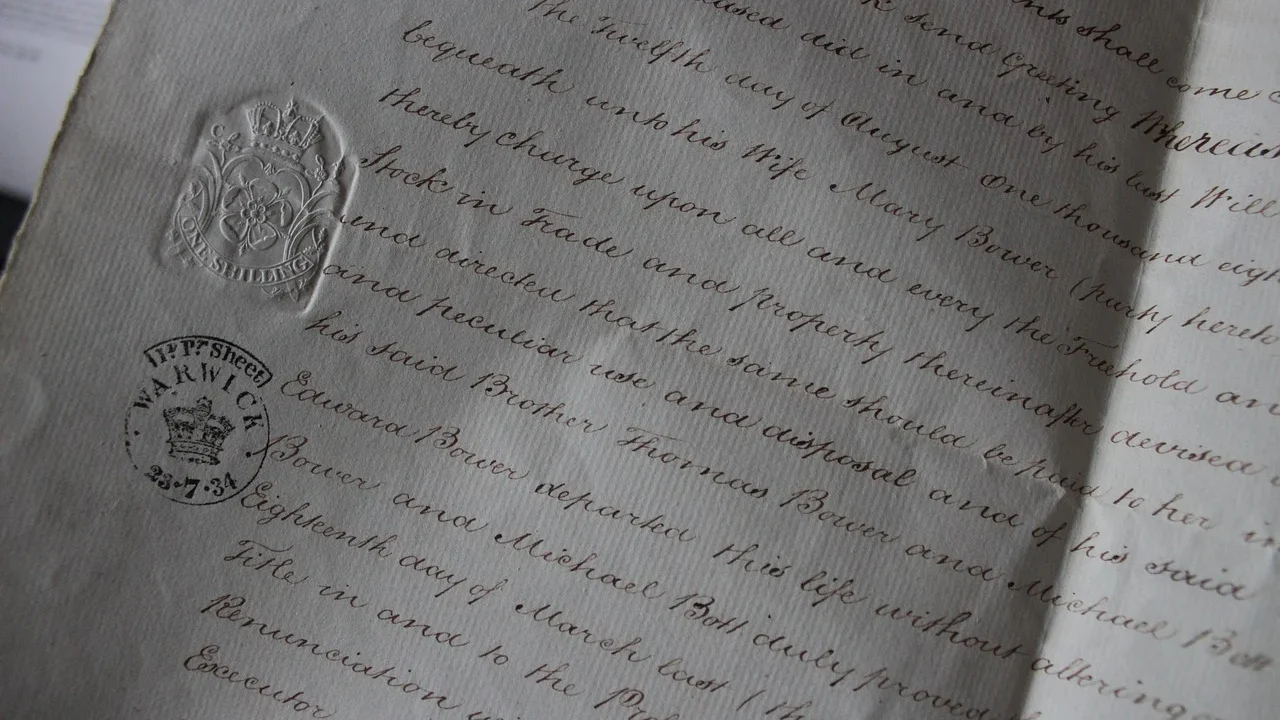 shall come
k send Greeting Whereas
did in and by his last Will
The Twelfth day of August One thousand eigh
bequeath unto his Wife Mary Bower (party hereto
thereby charge upon all and every the Freehold an
Stock in Trade and property thereinafter devised
and directed that the same should be paid to her in
and peculiar use and disposal and of his said
his said Brother Thomas Bower and Michael Bott
Edward Bower departed this life without altering
Bower and Michael Bott duly proved
Eighteenth day of March last (th
Title in and to the
Renunciation
Executor
ONE SHILLING
Sheet
WARWICK
23·7·34